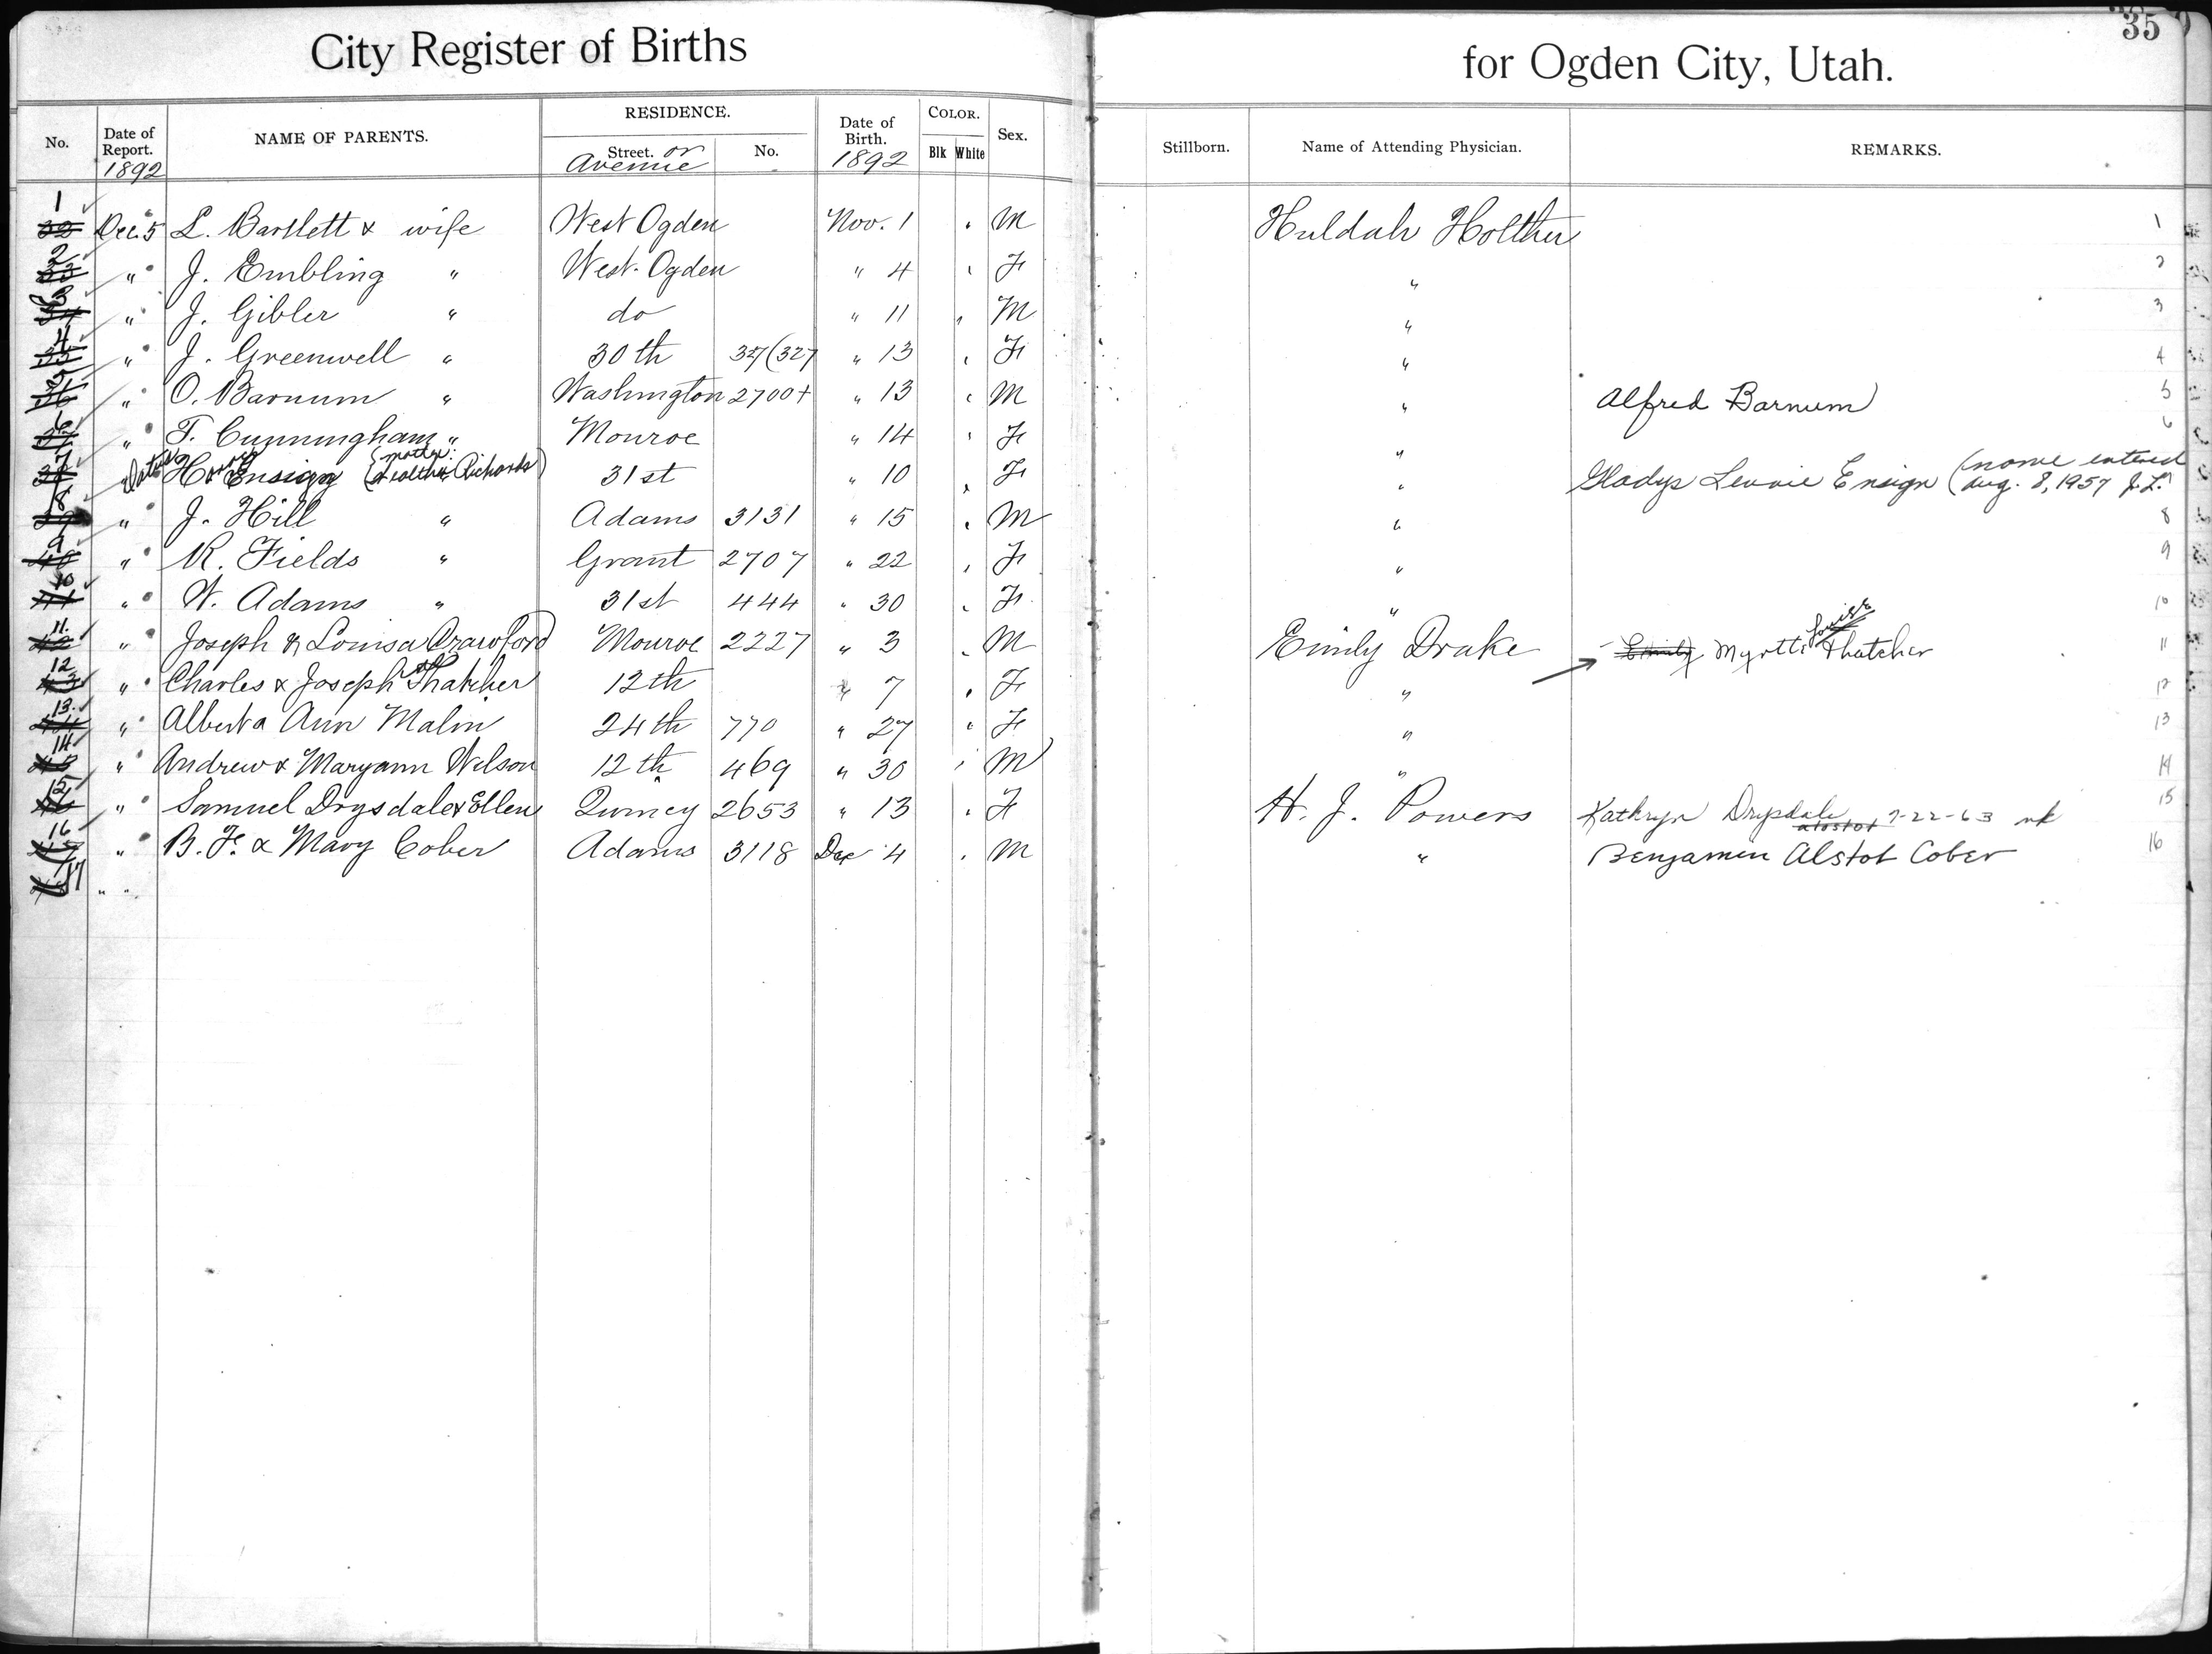 City Register of Births for Ogden City, Utah. 35
No. Date of Report. 1892 NAME OF PARENTS. RESIDENCE. Street. or Avenue No. Date of Birth. 1892 COLOR. Blk White Sex. Stillborn. Name of Attending Physician. REMARKS.
1 32 Dec. 5 L. Bartlett & wife West Ogden Nov. 1 M Huldah Holther 1
2 33 " J. Embling " West Ogden " 4 F " 2
3 34 " J. Gibler " do " 11 M " 3
4 35 " J. Greenwell " 30th 327 (327 " 13 F " 4
5 36 " O. Barnum " Washington 2700+ " 13 M " Alfred Barnum 5
6 37 " T. Cunningham " Monroe " 14 F " 6
7 38 " H. Ensign (mother: Richards) 31st " 10 F " Gladys Lennie Ensign (name entered Aug. 8, 1957 J.L.)
8 39 " J. Hill " Adams 3131 " 15 M " 8
9 40 " R. Fields " Grant 2707 " 22 F " 9
10 41 " W. Adams " 31st 444 " 30 F " 10
11. 42 " Joseph & Louisa Crawford Monroe 2227 " 3 M Emily Drake Emily Myrtle Thatcher 11
12 43 " Charles & Joseph Thatcher 12th " 7 F " 12
13. 44 " Alberta Ann Malin 24th 770 " 27 F " 13
14 45 " Andrew & Maryann Wilson 12th 469 " 30 M " 14
15 46 " Samuel Drysdale & Ellen Quincy 2653 " 13 F H. J. Powers Kathryn Drysdale 7-22-63 nk 15
16 47 " B. F. & Mary Cober Adams 3118 Dec 4 M " Benjamin Alstot Cober 16
17 48 " "